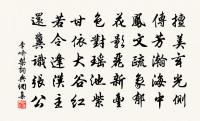 擅美玄光側
傳芳瀚海中
鳳文疏象郡
花影麗新豐
色對瑤池紫
甘依大谷紅
若令逢漢主
還冀識張公
李嶠梨詞典網集